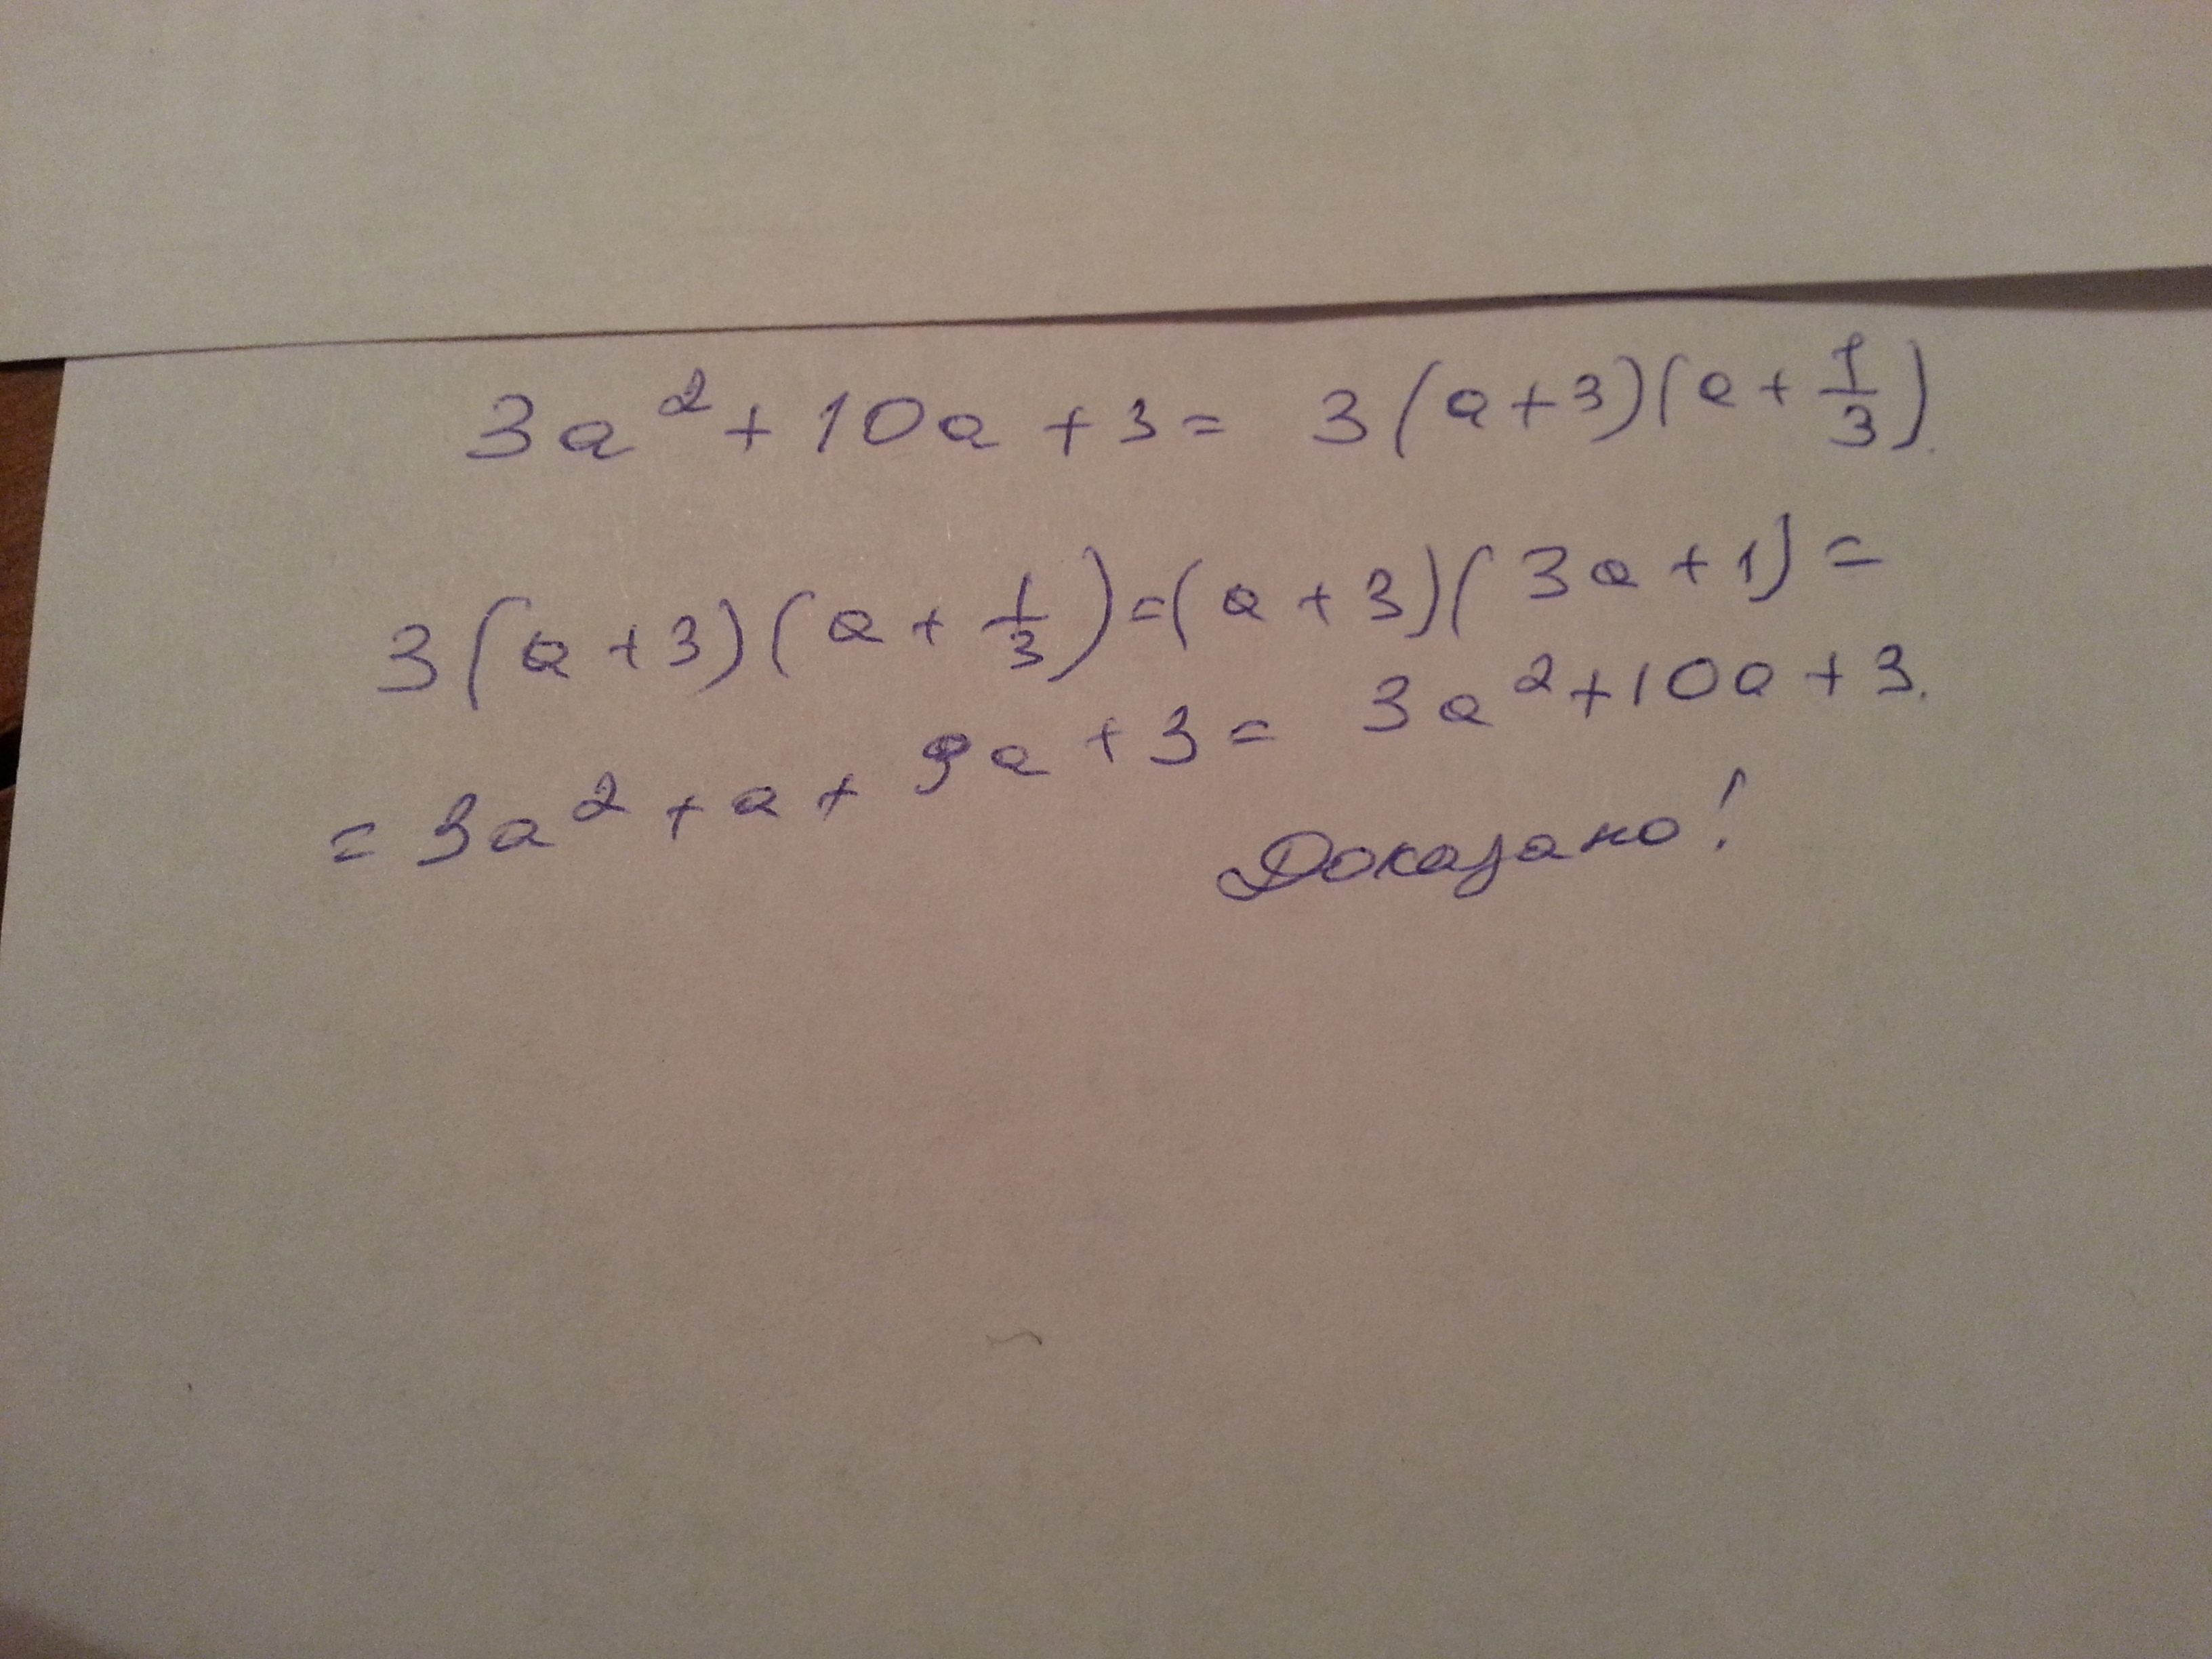 3a² + 10a + 3 = 3(a+3)(a + 1/3).
3(a+3)(a + 1/3) = (a+3)(3a+1) =
= 3a² + a + 9a + 3 = 3a² + 10a + 3.
Доказано!